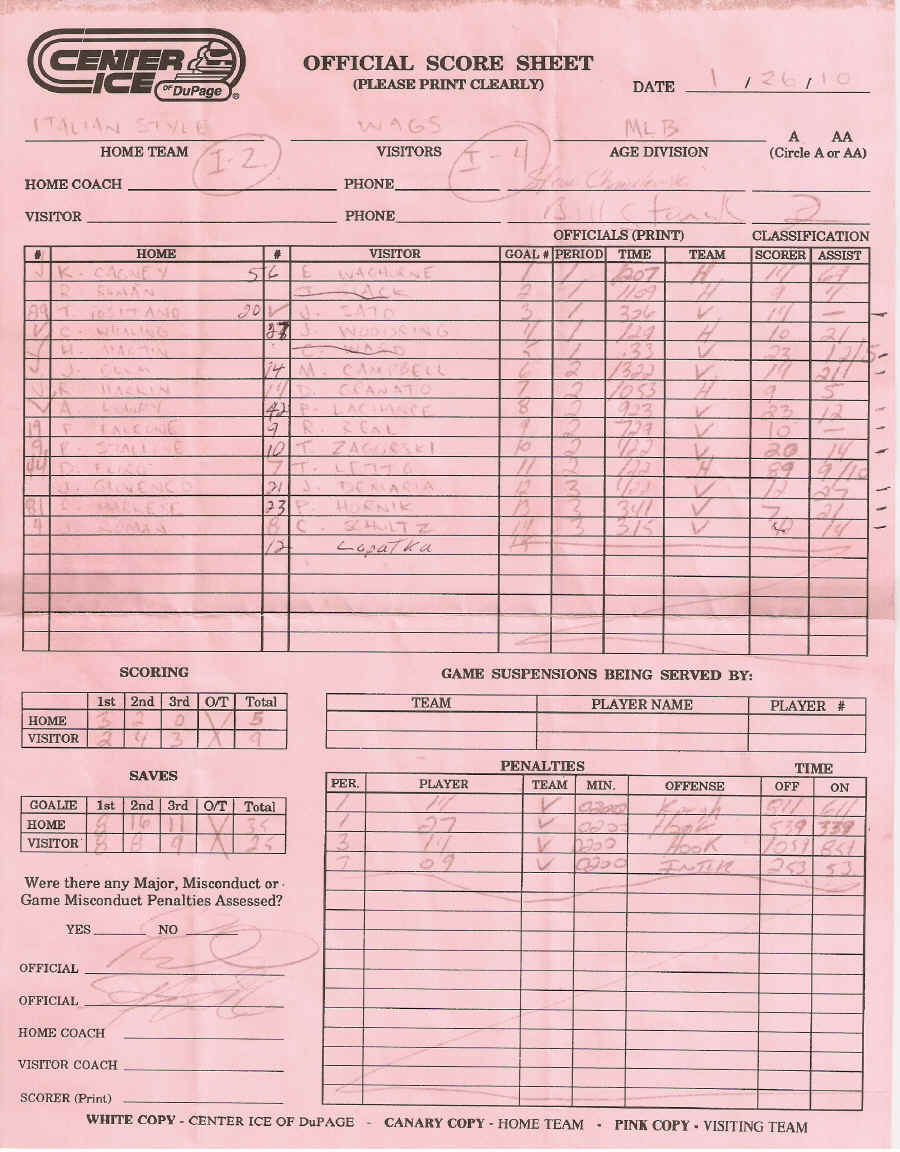 CENTER ICE OF DuPage ®
OFFICIAL SCORE SHEET
(PLEASE PRINT CLEARLY)
DATE 1 / 26 / 10
ITALIAN STYLE WAGS MLB A AA
HOME TEAM VISITORS AGE DIVISION (Circle A or AA)
I-2 I-4
HOME COACH PHONE
VISITOR PHONE Bill 2
OFFICIALS (PRINT) CLASSIFICATION
# HOME # VISITOR GOAL # PERIOD TIME TEAM SCORER ASSIST
K. CAGNEY 56 E 1 1 1207 H 19 69
2 1 H 9
89 T. TOSITANO 20 J. SATO 3 1 326 V 14 —
C. WHALING J. WOODRING 4 1 129 H 10 21
H. MARTIN C. WARD 5 1 :33 V 23 12/5
J. 14 M. CAMPBELL 6 2 1322 V 19
R. 19 D. GRANATO 7 2 1053 H 9 5
A. 42 P. LACHANCE 8 2 923 V 23 12
19 F. FALCONE 9 R. REAL 9 2 729 V 10 —
9 P. 10 T. ZAGORSKI 10 2 422 V 20 14
44 D. 7 T. 11 2 122 H 89 9/10
J. 21 J. DEMARIA 12 3 V 12 27
81 23 P. HORNIK 13 3 341 V 7 21
4 J. ROMAN 8 C. SCHULTZ 14 3 315 V 14
12 Lopatka
SCORING
1st 2nd 3rd O/T Total
HOME 3 2 0 5
VISITOR 2 4 3 9
GAME SUSPENSIONS BEING SERVED BY:
TEAM PLAYER NAME PLAYER #
SAVES
GOALIE 1st 2nd 3rd O/T Total
HOME 16 11
VISITOR 8 8 9 25
PENALTIES TIME
PER. PLAYER TEAM MIN. OFFENSE OFF ON
1 14 V 0200 811 611
1 27 V 0200 HOOK 539 339
3 14 V 0200 HOOK 1051 851
09 V 0200 INTER 253 53
Were there any Major, Misconduct or
Game Misconduct Penalties Assessed?
YES NO
OFFICIAL
OFFICIAL
HOME COACH
VISITOR COACH
SCORER (Print)
WHITE COPY - CENTER ICE OF DuPAGE - CANARY COPY - HOME TEAM - PINK COPY - VISITING TEAM